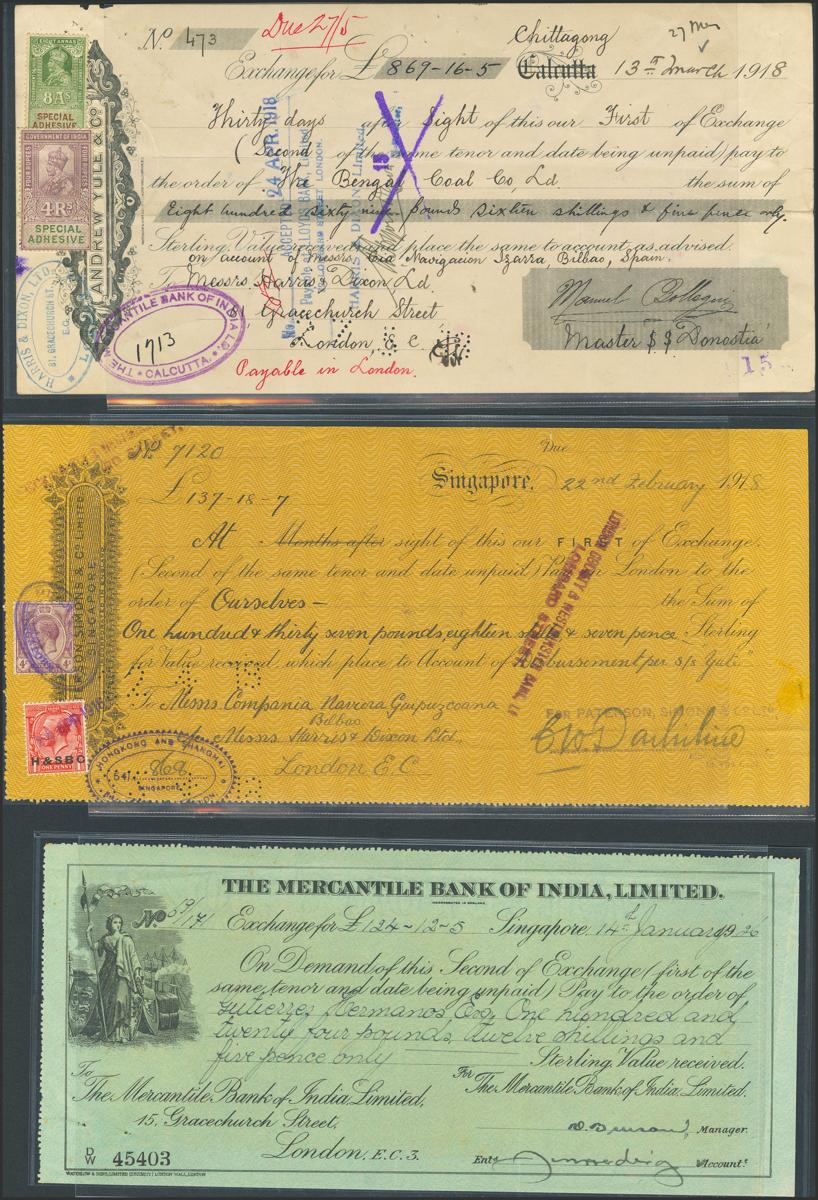 Nº 473
Due 27/5
Chittagong
27 May
Exchange for £ 869-16-5 Calcutta 13th March 1918
8 AS
SPECIAL
ADHESIVE
GOVERNMENT OF INDIA
FOUR RUPEES
4 RS
SPECIAL
ADHESIVE
ANDREW YULE & Cº
Thirty days after Sight of this our First of Exchange
(Second of the same tenor and date being unpaid) pay to
the order of The Bengal Coal Co, Ld. the sum of
Eight hundred sixty nine pounds sixteen shillings & five pence only.
Sterling. Value received and place the same to account as advised.
on account of Messrs. Cia Navigacion Izarra, Bilbao, Spain.
To Messrs. Harris & Dixon Ld.
81 Gracechurch Street
London, E.C.
Payable in London.
ACCEPTED 24 APR. 1918
Payable at LLOYDS BANK, Limited
LOMBARD STREET LONDON.
HARRIS & DIXON, Limited.
15
HARRIS & DIXON, LTD
81, GRACECHURCH ST.
E.C.
THE MERCANTILE BANK OF INDIA LD.
1713
CALCUTTA
Manuel
Master SS "Donostia"
15
Nº 7120
Due
£ 137-18-7
Singapore, 22nd February 1918
At Months after sight of this our FIRST of Exchange.
(Second of the same tenor and date unpaid) Pay in London to the
order of Ourselves — the Sum of
One hundred & thirty seven pounds, eighteen & seven pence Sterling
for Value received, which place to Account of Disbursement per S/S "
To Messrs. Compania Naviera Guipuzcoana
Bilbao
c/o Messrs Harris & Dixon Ltd.,
London E.C
PATERSON, SIMONS & Cº LIMITED.
SINGAPORE.
LONDON COUNTY & WESTMINSTER BANK, LD
LOMBARD STREET
FOR PATERSON, SIMONS &
4c 4c
ONE PENNY
H & SBC
HONGKONG AND SHANGHAI
641
SINGAPORE
THE MERCANTILE BANK OF INDIA, LIMITED.
INCORPORATED IN ENGLAND.
Nº 59/171 Exchange for £124-12-5 Singapore, 14th January 1926
On Demand of this Second of Exchange (first of the
same tenor and date being unpaid) Pay to the order of
Gutierrez Hermanos, Esq. One hundred and
twenty four pounds, twelve shillings and
five pence only Sterling. Value received.
To
The Mercantile Bank of India, Limited,
15, Gracechurch Street,
London, E.C.3.
For
The Mercantile Bank of India, Limited.
Manager.
Entd. Accountt.
D/W 45403
WATERLOW & SONS, LIMITED LONDON WALL, LONDON